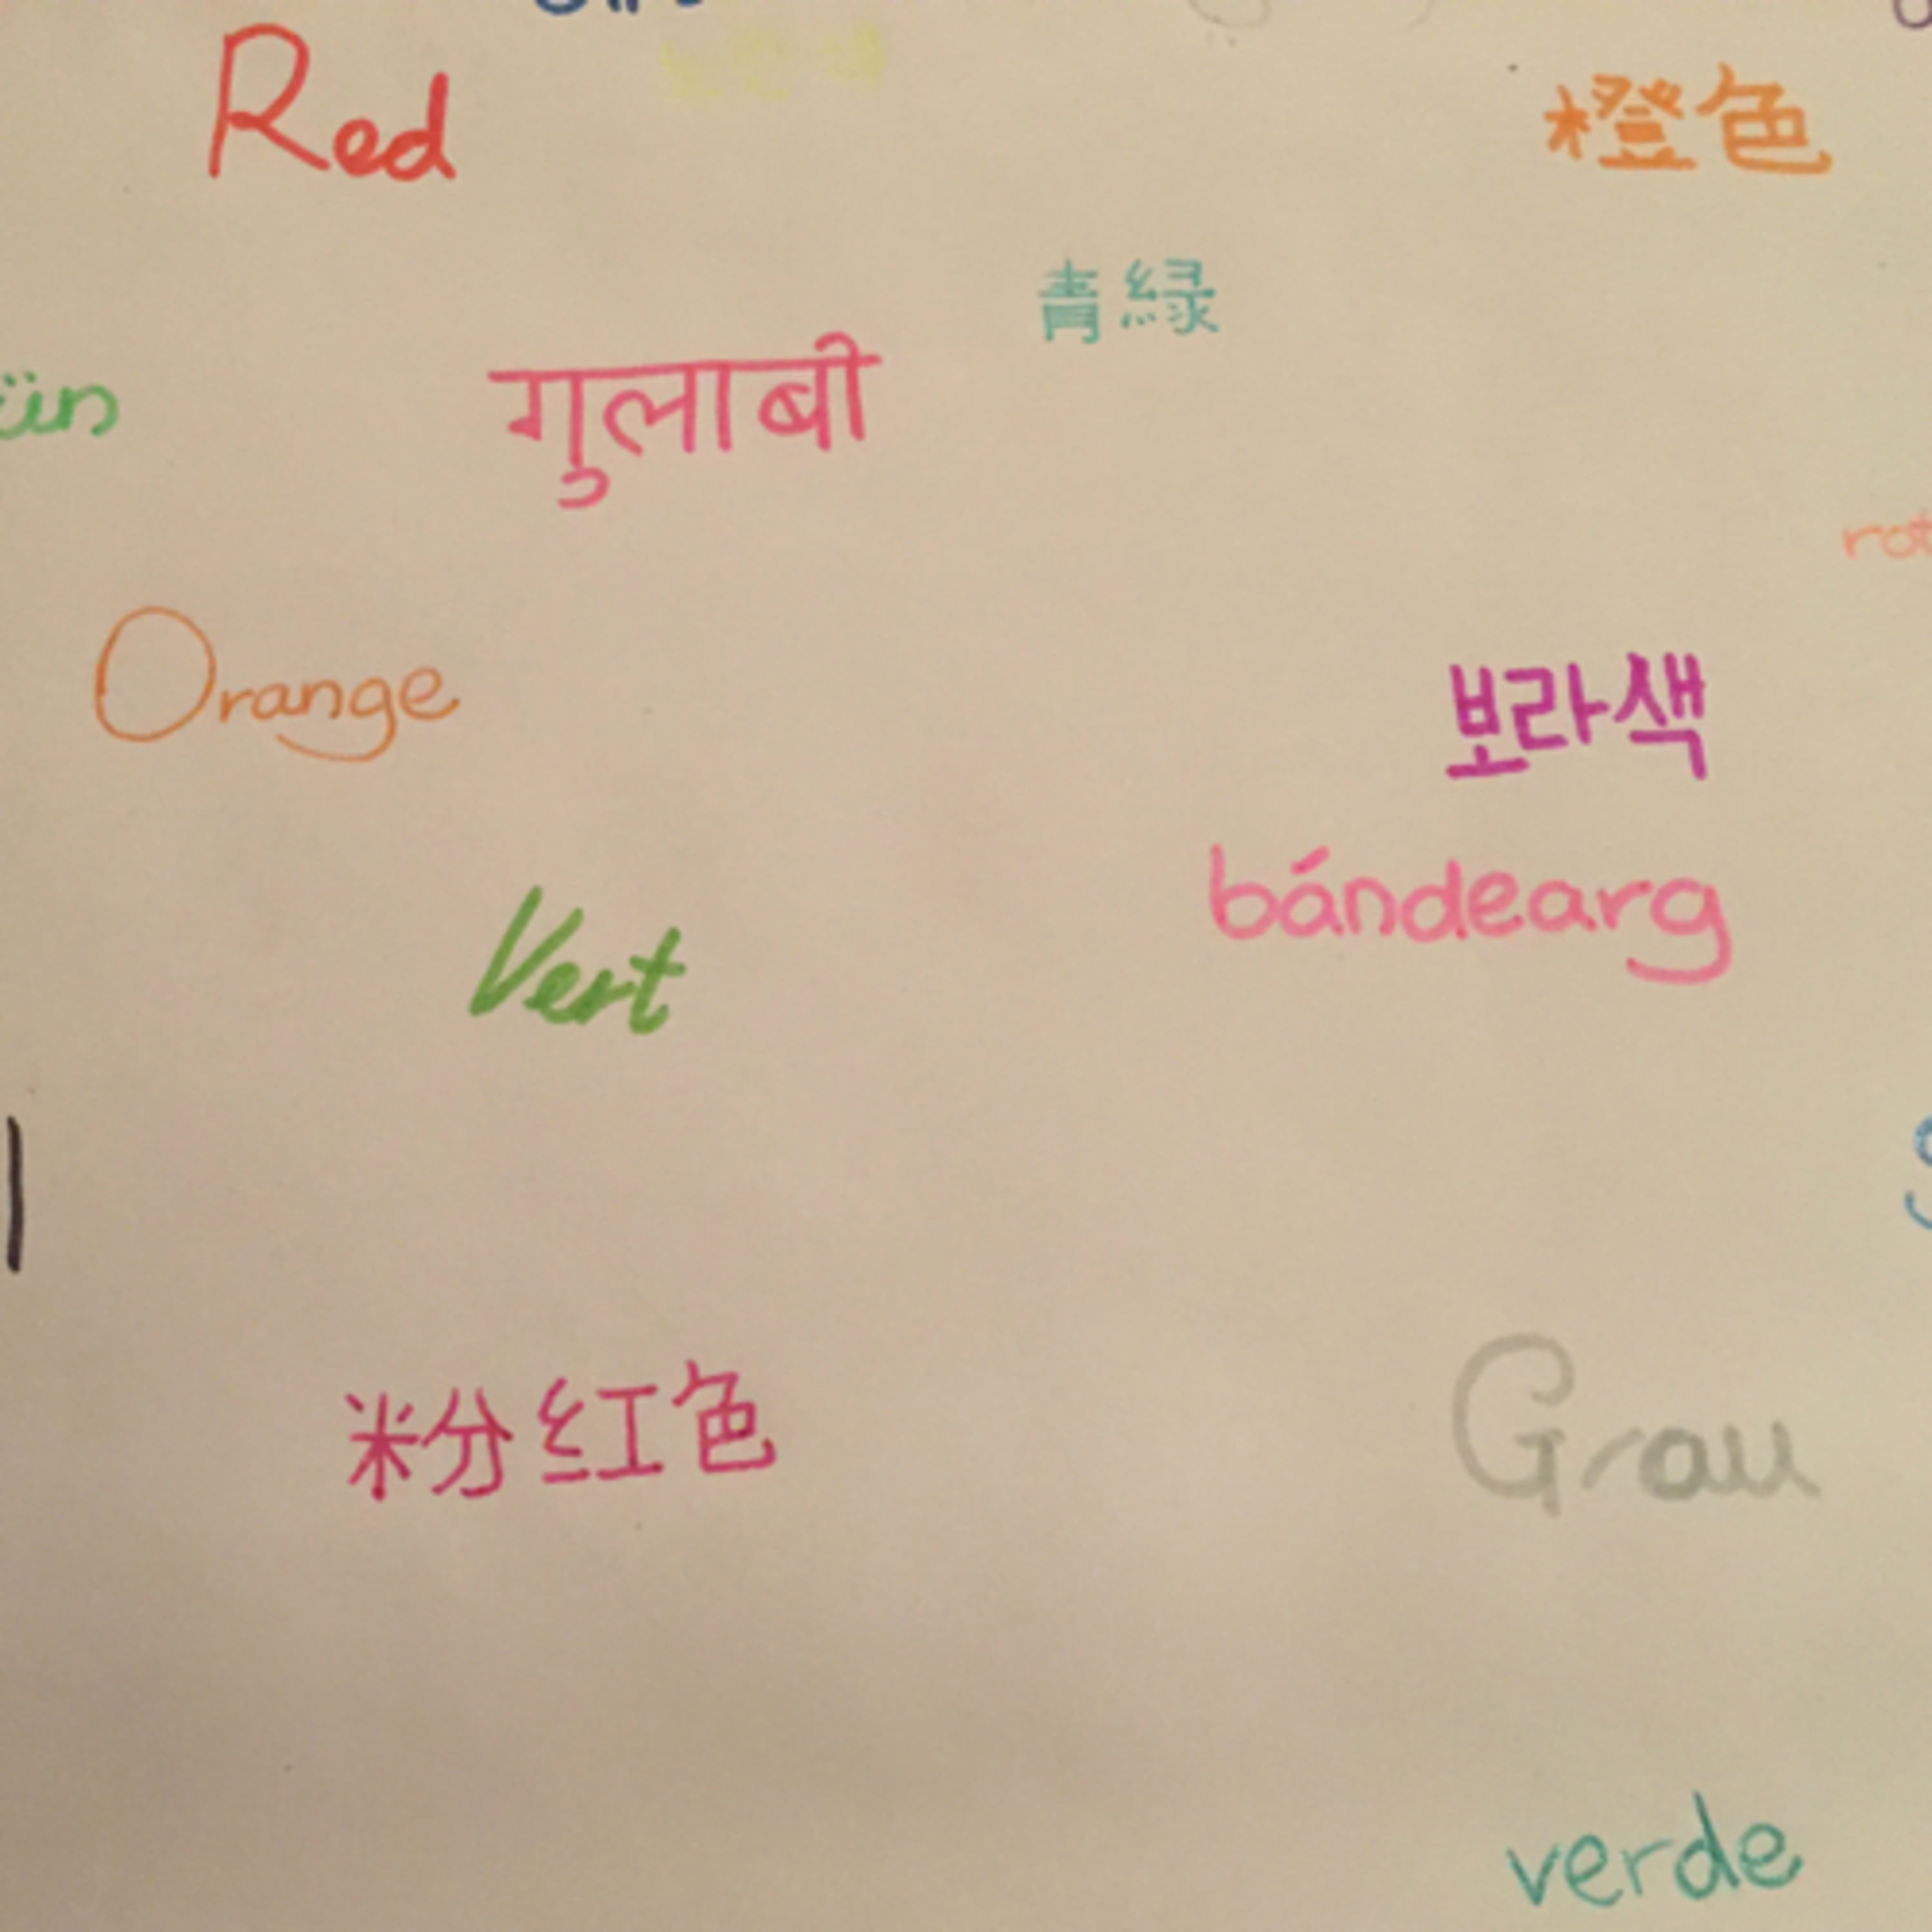 Red
橙色
青緑
गुलाबी
Orange
보라색
bándearg
Vert
粉红色
Grau
verde